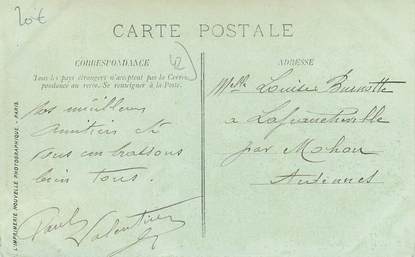 20€
CARTE POSTALE
CORRESPONDANCE
42
Tous les pays étrangers n'acceptent pas la Corres-
pondance au verso. Se renseigner à la Poste.
Nos meilleurs
amitiés et
vous embrassons
bien tous.
Paul Valentine
ADRESSE
Melle Louise
à Lafrancheville
par Mohon
Ardennes
L'IMPRIMERIE NOUVELLE PHOTOGRAPHIQUE - PARIS